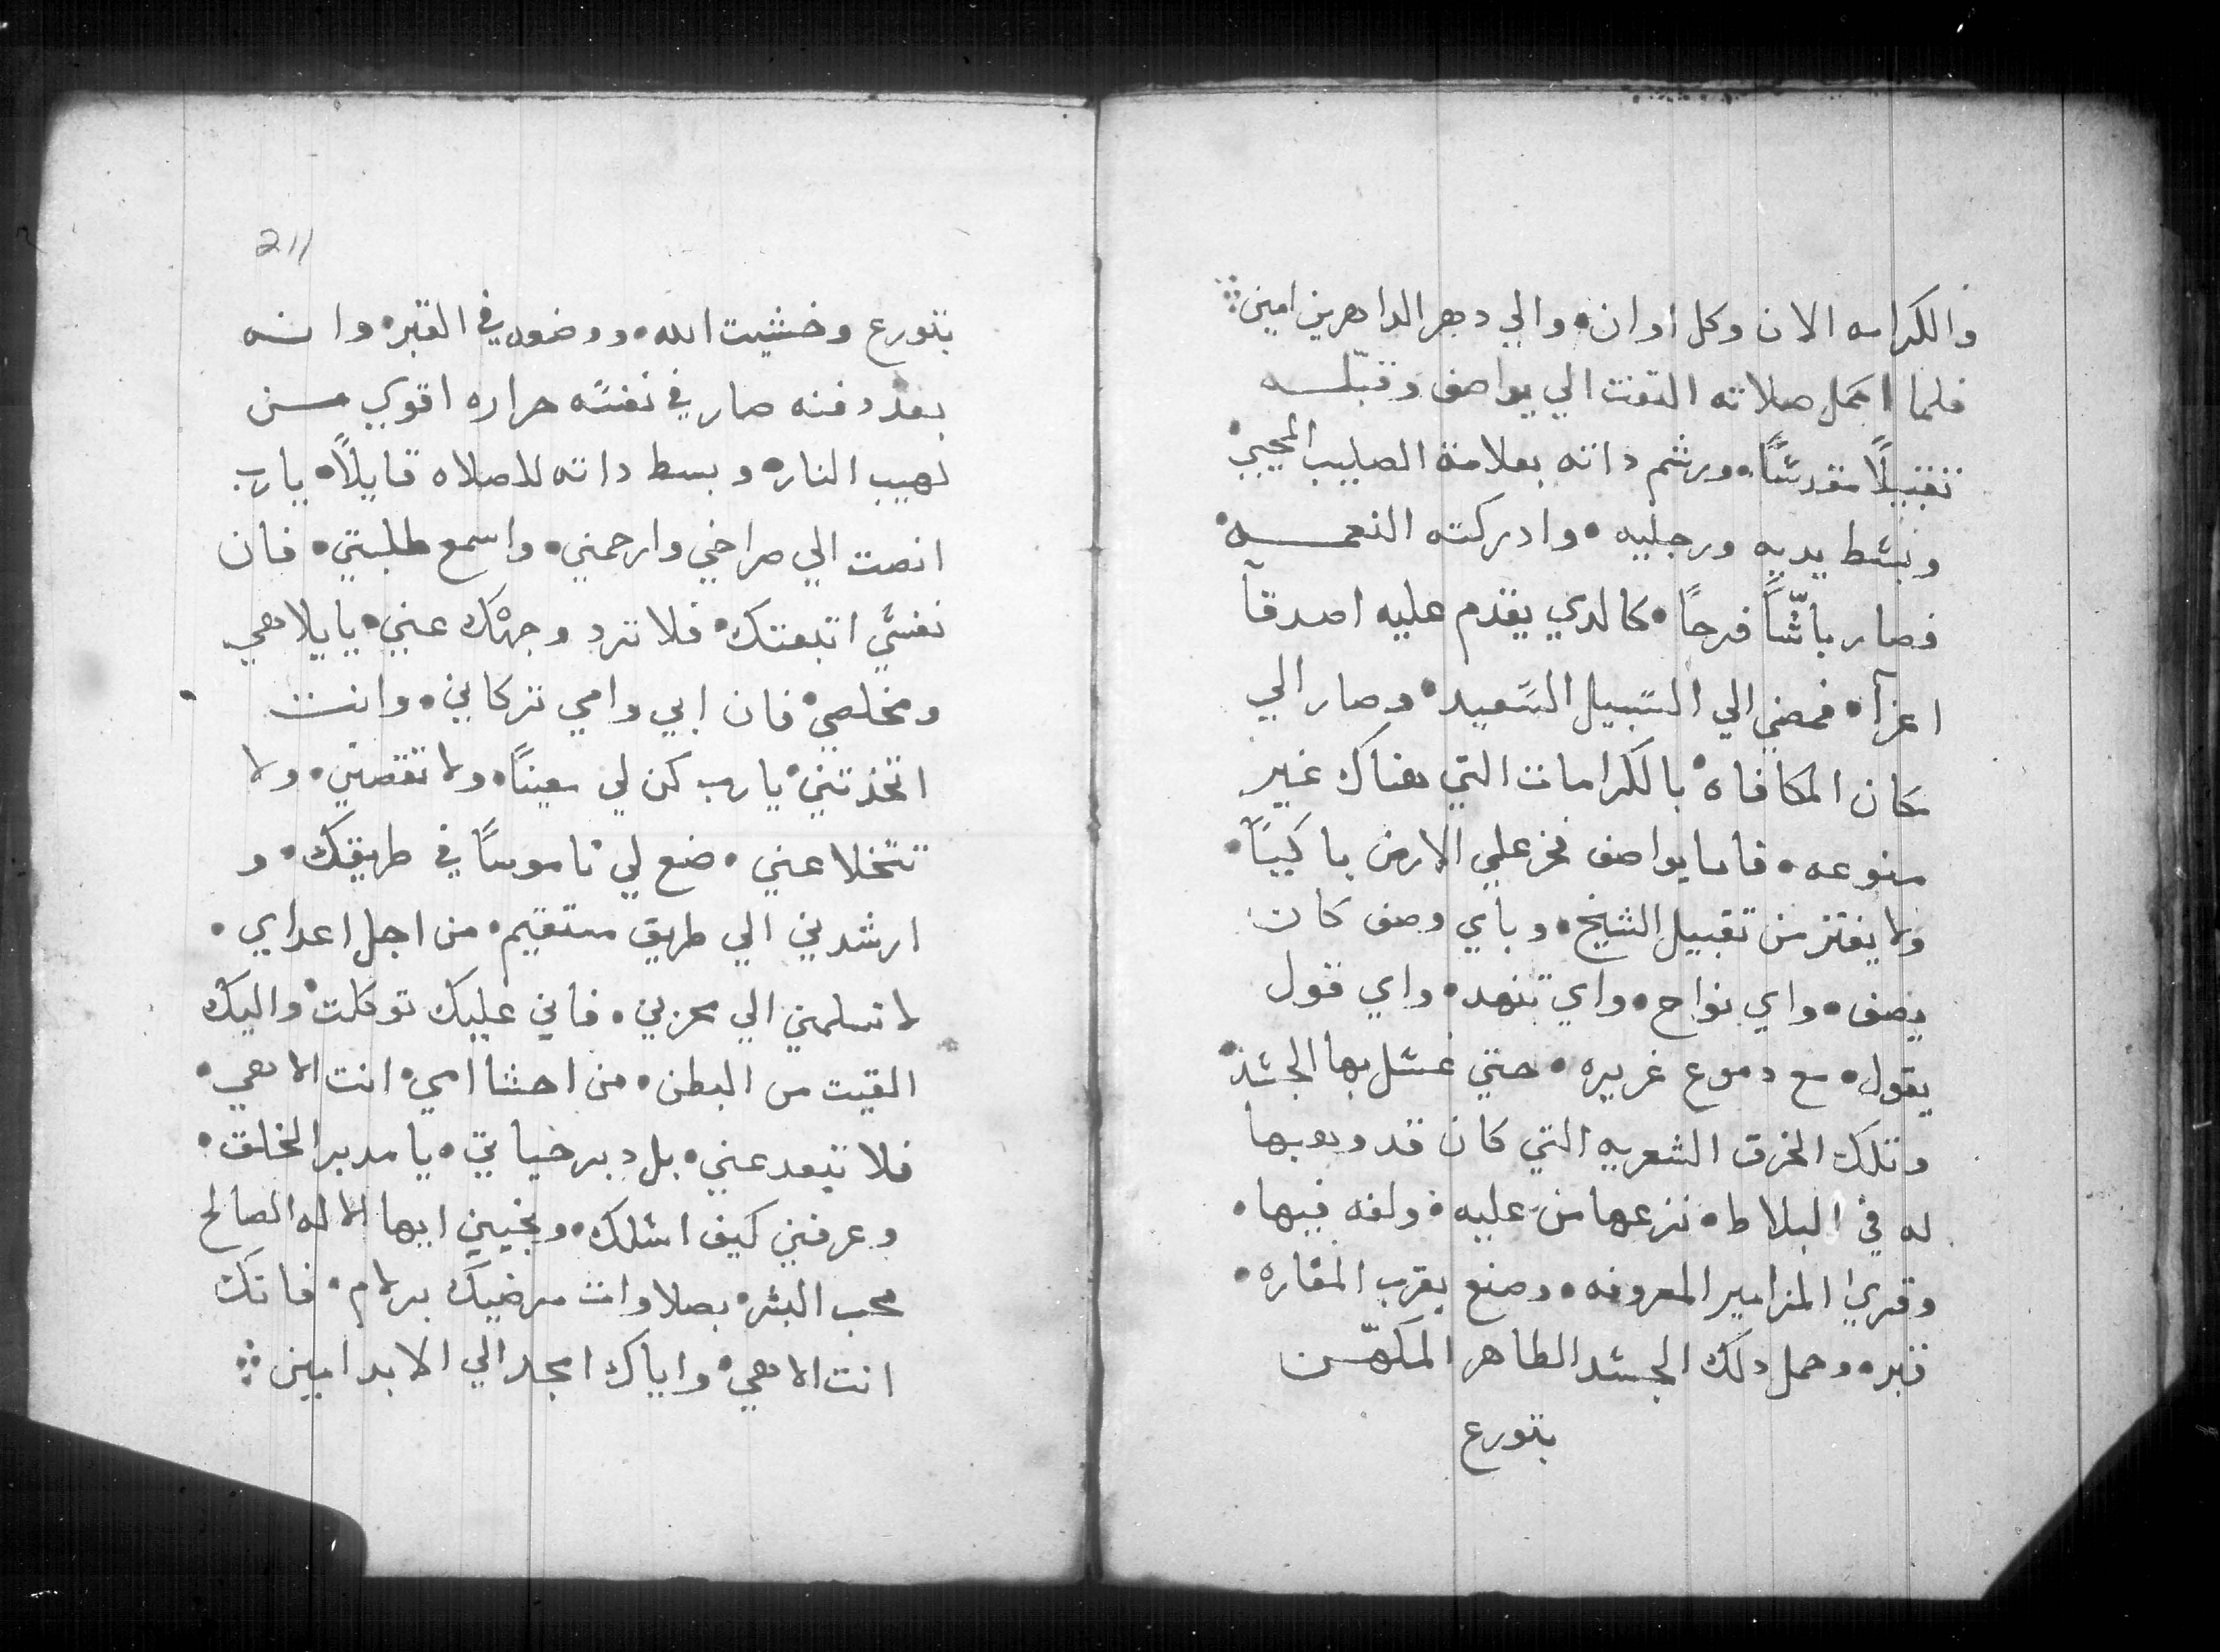 والكرامه الان وكل اوان• والي دهر الداهرين امين܀
فلما اكمل صلاته التفت الي يواصف وقبّله
تقبيلًا مقدسًا• ورشم داته بعلامة الصليب المحيي•
وبسط يديه ورجليه• وادركته النعمه•
فصار باشًّا فرحًا• كالدي يقدم عليه اصدقآ
اعزآ• فمضي الي السبيل السعيد• وصار الي
مكان المكافاه• بالكرامات التي هناك غير
منوعه• فاما يواصف فخر علي الارض باكيًا•
ولا يفتر من تقبيل الشيخ• وباي وصف كان
يصف• واي نواح• واي تنهد• واي قول
يقول• مع دموع غريره• حتي غسل بها الجسد•
وتلك الخرق الشعريه التي كان قد وهبها
له في البلاط• نزعها من عليه• ولفه فيها•
وقري المزامير المعروفه• وصنع بقرب المغاره•
قبره• وحمل دلك الجسد الطاهر المكهّن
بتورع
211
بتورع وخشيت الله• ووضعوه في القبر• وانه
بعد دفنه صار في نفسه حراره اقوي من
لهيب النار• وبسط داته للصلاه قايلًا• يارب
انصت الي صراخي وارحمني• واسمع طلبتي• فان
نفسي اتبعتك• فلا ترد وجهك عني• يا يلاهي
ومخلصي• فان ابي وامي تركاني• وانت
اتخذتني• يارب كن لي معينًا• ولا تقصني• ولا
تتخلا عني• ضع لي ناموسًا في طريقك• و
ارشدني الي طريق مستقيم• من اجل اعداي•
لا تسلمني الي محزني• فاني عليك توكلت• واليك
القيت من البطن• من احشا امي• انت الاهي•
فلا تبعد عني• بل دبر حياتي• يا مدبر الخلق•
وعرفني كيف اسلك• ونجيني ايها الاله الصالح
محب البشر• بصلاوات مرضيك برلام• فانك
انت الاهي• واياك امجد الي الابد امين܀